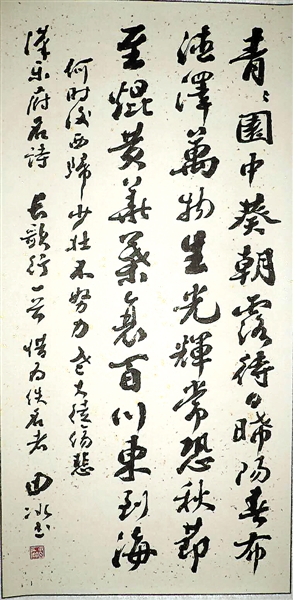 青々園中葵朝露待日晞陽春布
德澤萬物生光輝常恐秋節
至焜黄華葉衰百川東到海
何时復西歸少壮不努力老大徒傷悲
漢乐府名詩 长歌行一首 惜为佚名者 田冰书